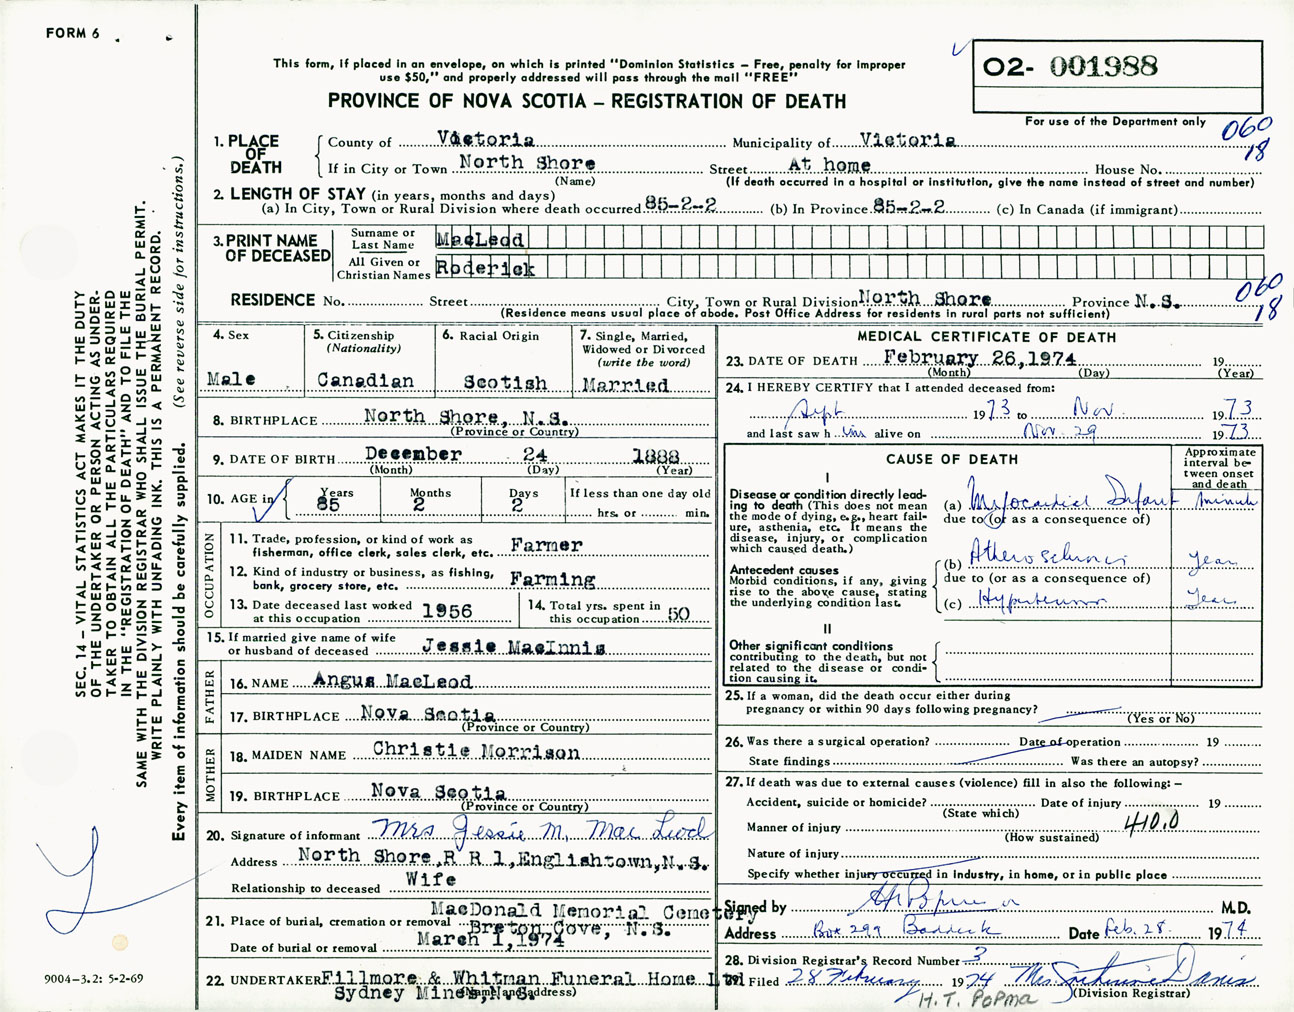 FORM 6
SEC. 14 – VITAL STATISTICS ACT MAKES IT THE DUTY
OF THE UNDERTAKER OR PERSON ACTING AS UNDER-
TAKER TO OBTAIN ALL THE PARTICULARS REQUIRED
IN THE "REGISTRATION OF DEATH" AND TO FILE THE
SAME WITH THE DIVISION REGISTRAR WHO SHALL ISSUE THE BURIAL PERMIT.
WRITE PLAINLY WITH UNFADING INK. THIS IS A PERMANENT RECORD.
Every item of information should be carefully supplied. (See reverse side for instructions.)
9004-3.2: 5-2-69
This form, if placed in an envelope, on which is printed "Dominion Statistics – Free, penalty for improper
use $50," and properly addressed will pass through the mail "FREE"
PROVINCE OF NOVA SCOTIA – REGISTRATION OF DEATH
02- 001988
For use of the Department only
060
18
1. PLACE OF DEATH County of Victoria Municipality of Victoria
If in City or Town North Shore Street At home House No.
(Name) (If death occurred in a hospital or institution, give the name instead of street and number)
2. LENGTH OF STAY (in years, months and days)
(a) In City, Town or Rural Division where death occurred 85-2-2 (b) In Province 85-2-2 (c) In Canada (if immigrant)
3. PRINT NAME OF DECEASED Surname or Last Name MacLeod
All Given or Christian Names Roderick
RESIDENCE No. Street City, Town or Rural Division North Shore Province N.S.
(Residence means usual place of abode. Post Office Address for residents in rural parts not sufficient)
060
18
4. Sex Male
5. Citizenship (Nationality) Canadian
6. Racial Origin Scotish
7. Single, Married, Widowed or Divorced (write the word) Married
8. BIRTHPLACE North Shore, N.S.
(Province or Country)
9. DATE OF BIRTH December 24 1888
(Month) (Day) (Year)
10. AGE in Years 85 Months 2 Days 2 If less than one day old
hrs. or min.
OCCUPATION
11. Trade, profession, or kind of work as
fisherman, office clerk, sales clerk, etc. Farmer
12. Kind of industry or business, as fishing,
bank, grocery store, etc. Farming
13. Date deceased last worked at this occupation 1956
14. Total yrs. spent in this occupation 50
15. If married give name of wife
or husband of deceased Jessie MacInnis
FATHER
16. NAME Angus MacLeod
17. BIRTHPLACE Nova Scotia
(Province or Country)
MOTHER
18. MAIDEN NAME Christie Morrison
19. BIRTHPLACE Nova Scotia
(Province or Country)
20. Signature of informant Mrs Jessie M. MacLeod
Address North Shore, R R 1, Englishtown, N.S.
Relationship to deceased Wife
21. Place of burial, cremation or removal MacDonald Memorial Cemetery
Breton Cove, N.S.
Date of burial or removal March 1, 1974
22. UNDERTAKER Fillmore & Whitman Funeral Home Ltd
Sydney Mines, N.S.
(Name and address)
MEDICAL CERTIFICATE OF DEATH
23. DATE OF DEATH February 26, 1974 19
(Month) (Day) (Year)
24. I HEREBY CERTIFY that I attended deceased from:
Sept 1973 to Nov. 1973
and last saw h im alive on Nov. 29 1973
CAUSE OF DEATH
Approximate interval between onset and death
I
Disease or condition directly lead-
ing to death (This does not mean
the mode of dying, e.g., heart fail-
ure, asthenia, etc. It means the
disease, injury, or complication
which caused death.)
(a) Myocardial Infarct minute
due to (or as a consequence of)
Antecedent causes
Morbid conditions, if any, giving
rise to the above cause, stating
the underlying condition last.
(b) Atherosclerosis Years
due to (or as a consequence of)
(c) Hypertension Years
II
Other significant conditions
contributing to the death, but not
related to the disease or condi-
tion causing it.
25. If a woman, did the death occur either during
pregnancy or within 90 days following pregnancy?
(Yes or No)
26. Was there a surgical operation? Date of operation 19
State findings Was there an autopsy?
27. If death was due to external causes (violence) fill in also the following: –
Accident, suicide or homicide? Date of injury 19
(State which)
Manner of injury 410.0
(How sustained)
Nature of injury
Specify whether injury occurred in industry, in home, or in public place
Signed by M.D.
Address Box 299 Baddeck Date Feb. 28 1974
28. Division Registrar's Record Number 3
29. Filed 28 February 1974 Mrs. Davis
(Division Registrar)
H.T. POPMA